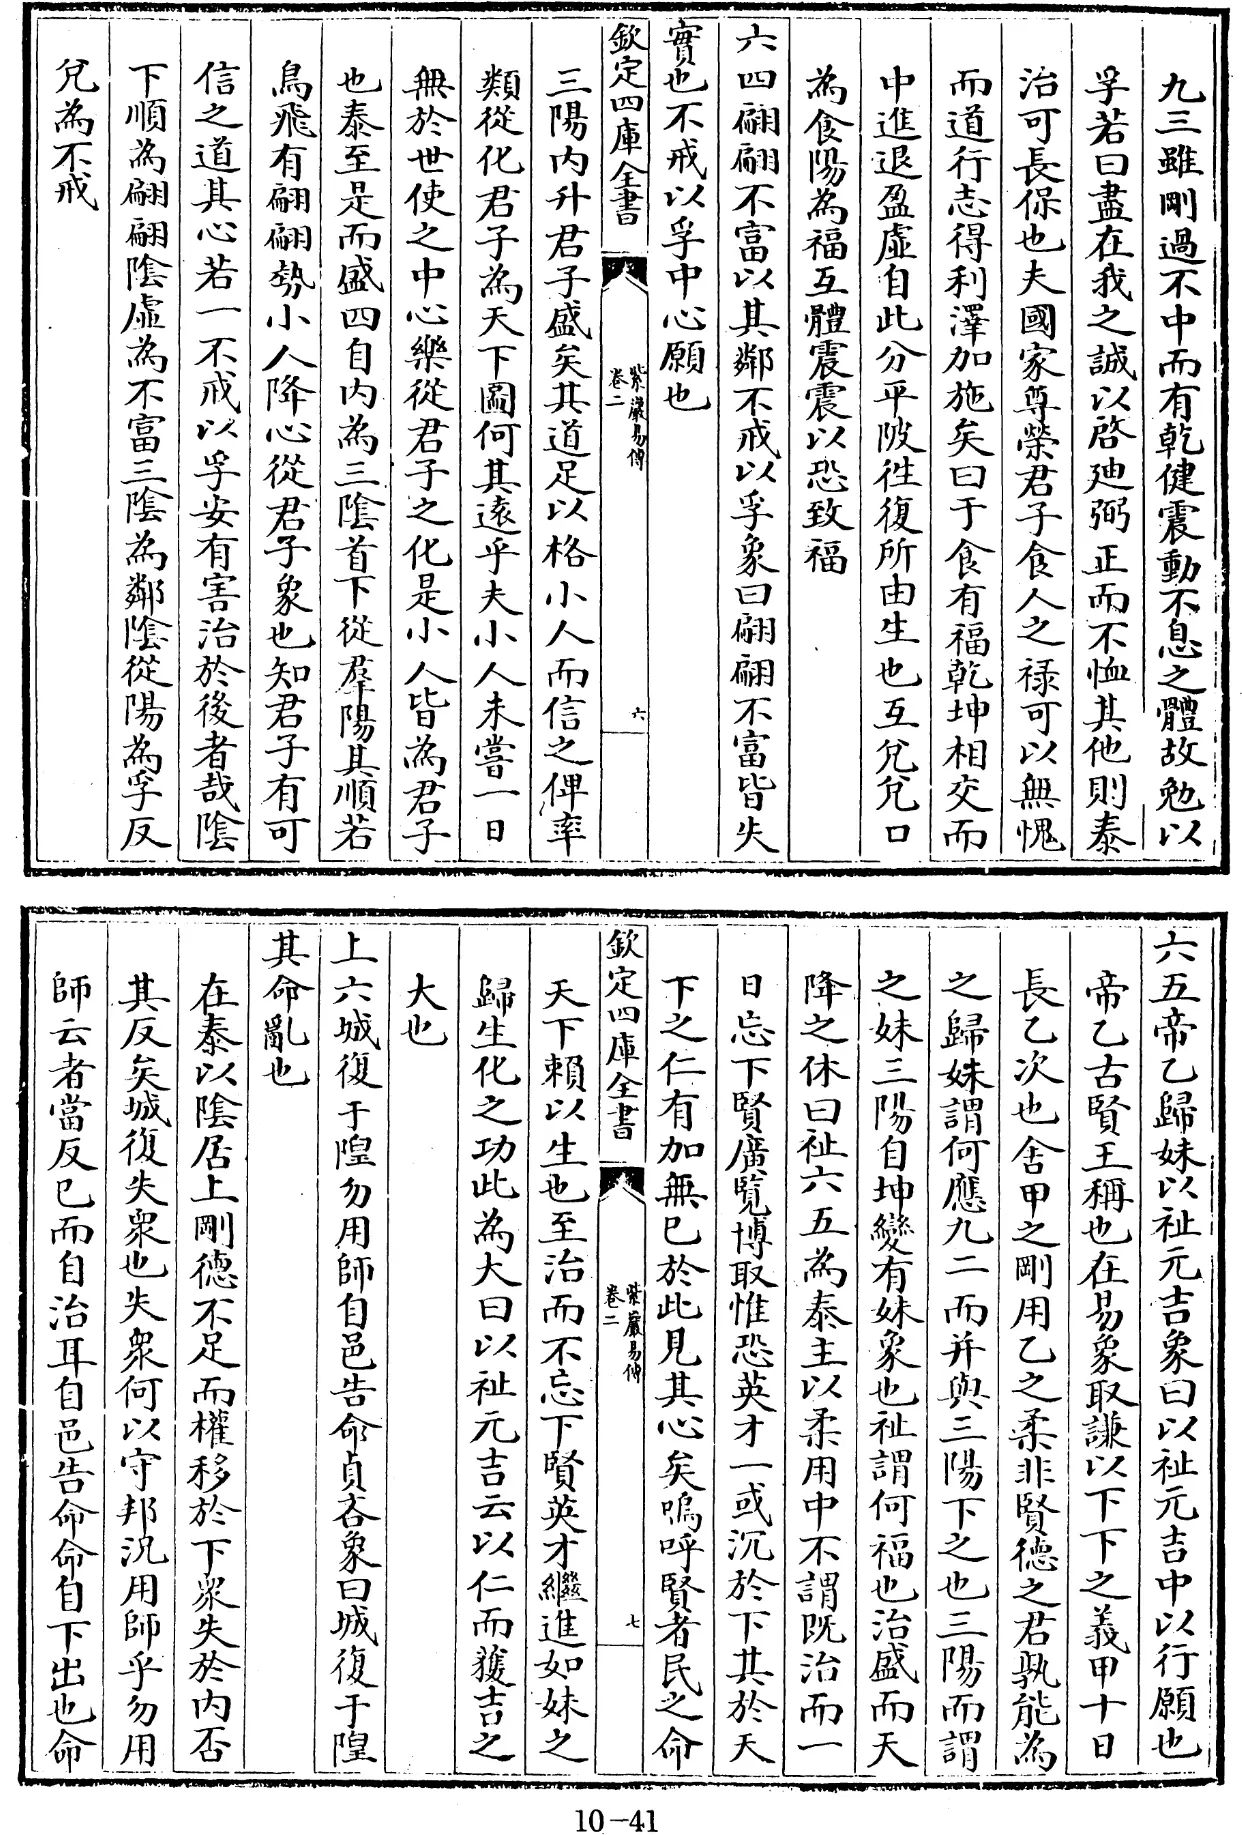 九三雖剛過不中而有乾健震動不息之體故勉以
孚若曰盡在我之誠以啓廸弼正而不恤其他則泰
治可長保也夫國家尊榮君子食人之禄可以無愧
而道行志得利澤加施矣曰于食有福乾坤相交而
中進退盈虛自此分平陂徃復所由生也互兌兌口
為食陽為福互體震震以恐致福
六四翩翩不富以其鄰不戒以孚象曰翩翩不富皆失
實也不戒以孚中心願也
欽定四庫全書
紫巖易傳
卷二
六
三陽内升君子盛矣其道足以格小人而信之俾率
類從化君子為天下圖何其遠乎夫小人未嘗一日
無於世使之中心樂從君子之化是小人皆為君子
也泰至是而盛四自内為三陰首下從羣陽其順若
鳥飛有翩翩勢小人降心從君子象也知君子有可
信之道其心若一不戒以孚安有害治於後者哉陰
下順為翩翩陰虛為不富三陰為鄰陰從陽為孚反
兌為不戒
六五帝乙歸妹以祉元吉象曰以祉元吉中以行願也
帝乙古賢王稱也在易象取謙以下下之義甲十日
長乙次也舍甲之剛用乙之柔非賢德之君孰能為
之歸妹謂何應九二而并與三陽下之也三陽而謂
之妹三陽自坤變有妹象也祉謂何福也治盛而天
降之休曰祉六五為泰主以柔用中不謂既治而一
日忘下賢廣覽博取惟恐英才一或沉於下其於天
下之仁有加無已於此見其心矣嗚呼賢者民之命
欽定四庫全書
紫巖易傳
卷二
七
天下賴以生也至治而不忘下賢英才繼進如妹之
歸生化之功此為大曰以祉元吉云以仁而獲吉之
大也
上六城復于隍勿用師自邑告命貞吝象曰城復于隍
其命亂也
在泰以陰居上剛德不足而權移於下衆失於内否
其反矣城復失衆也失衆何以守邦汎用師乎勿用
師云者當反已而自治耳自邑告命命自下出也命
10-41